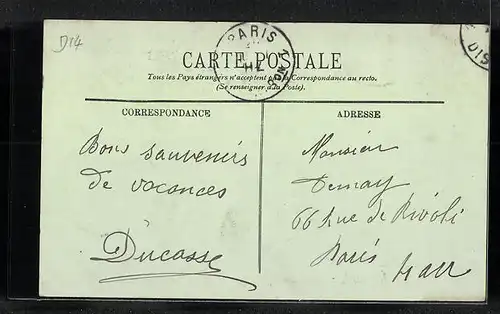 D14
PARIS
CARTE POSTALE
Tous les Pays étrangers n'acceptent pas la Correspondance au recto.
(Se renseigner à la Poste).
CORRESPONDANCE
ADRESSE
Bons souvenirs
de vacances
Ducasse
Monsieur
Demay
66 Rue de Rivoli
Paris